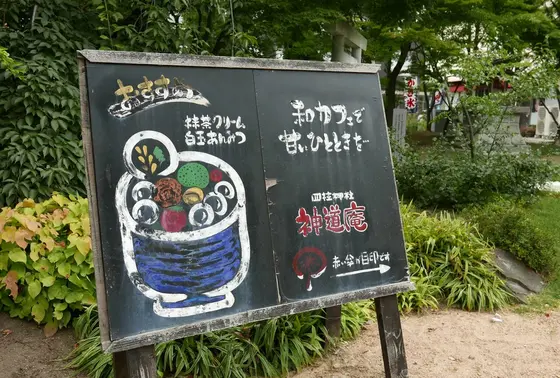 おすすめ
抹茶クリーム
白玉あんみつ
和カフェで
甘いひとときを…
四柱神社
神道庵
赤い傘が目印です
かき氷